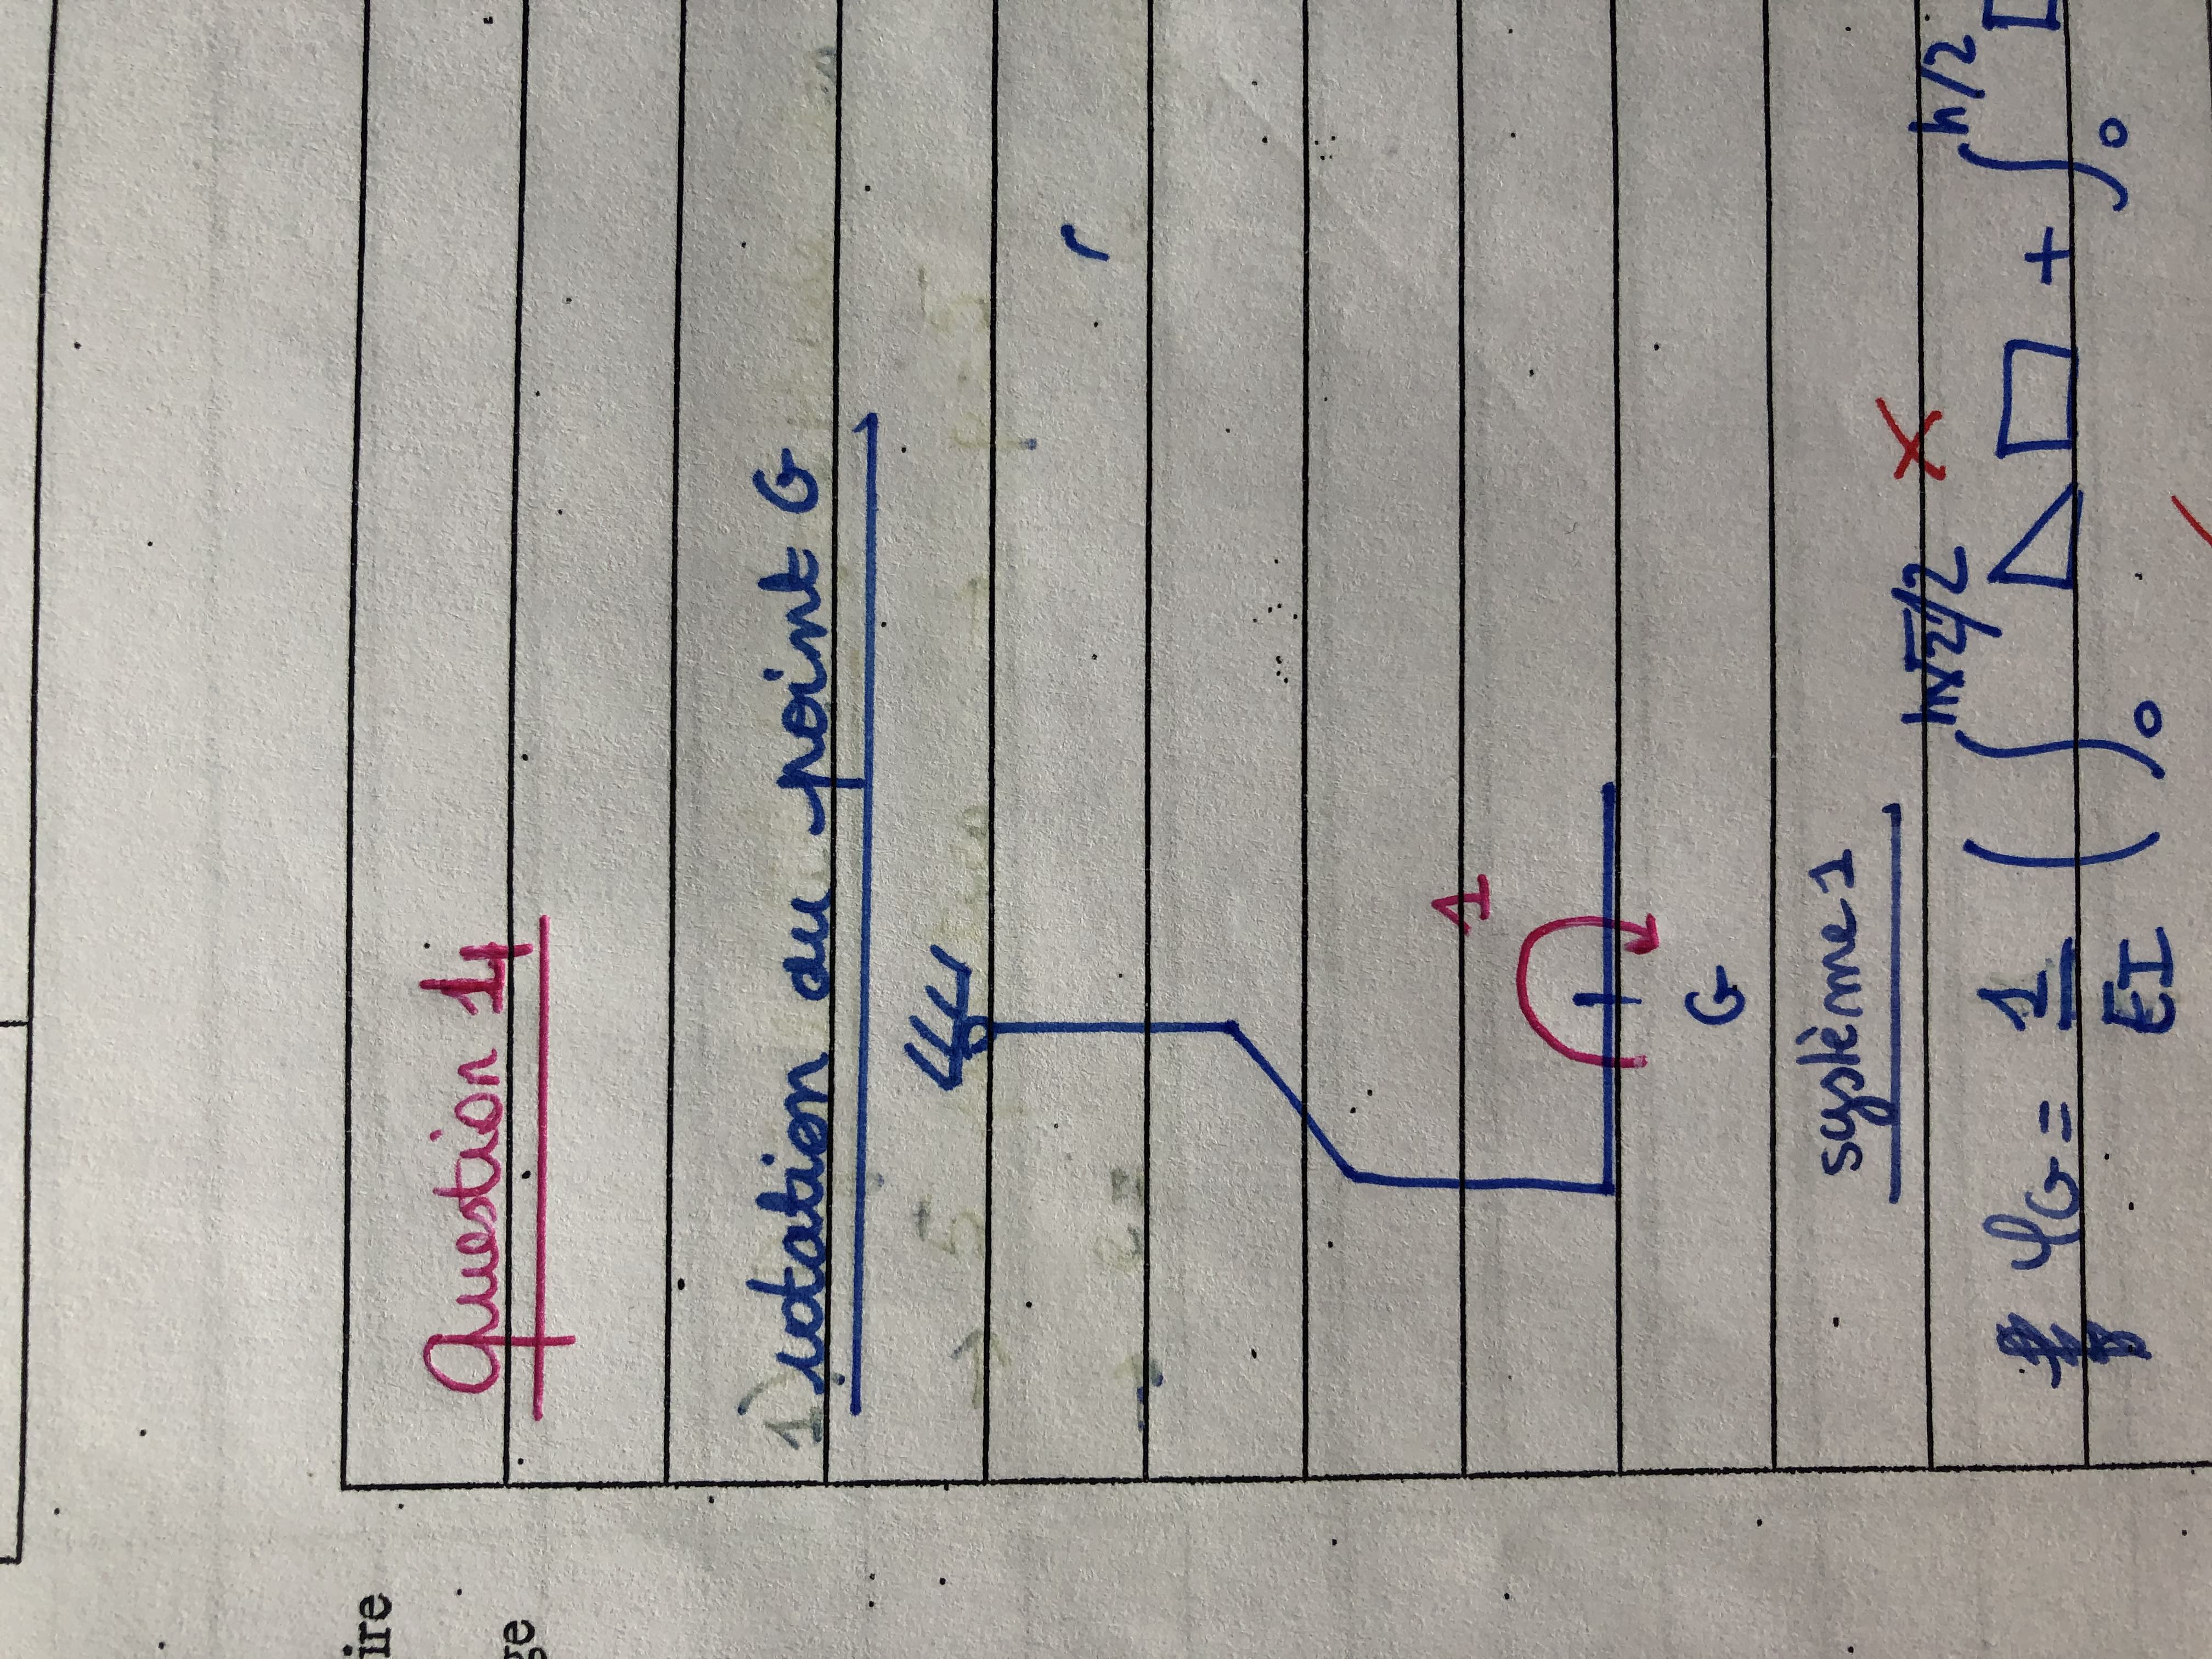 ire
ge
Question 14
1) rotation au point G
1
G
système 1
φG = 1/EI ( ∫₀^{h√2/2} △ □ + ∫₀^{h/2} □